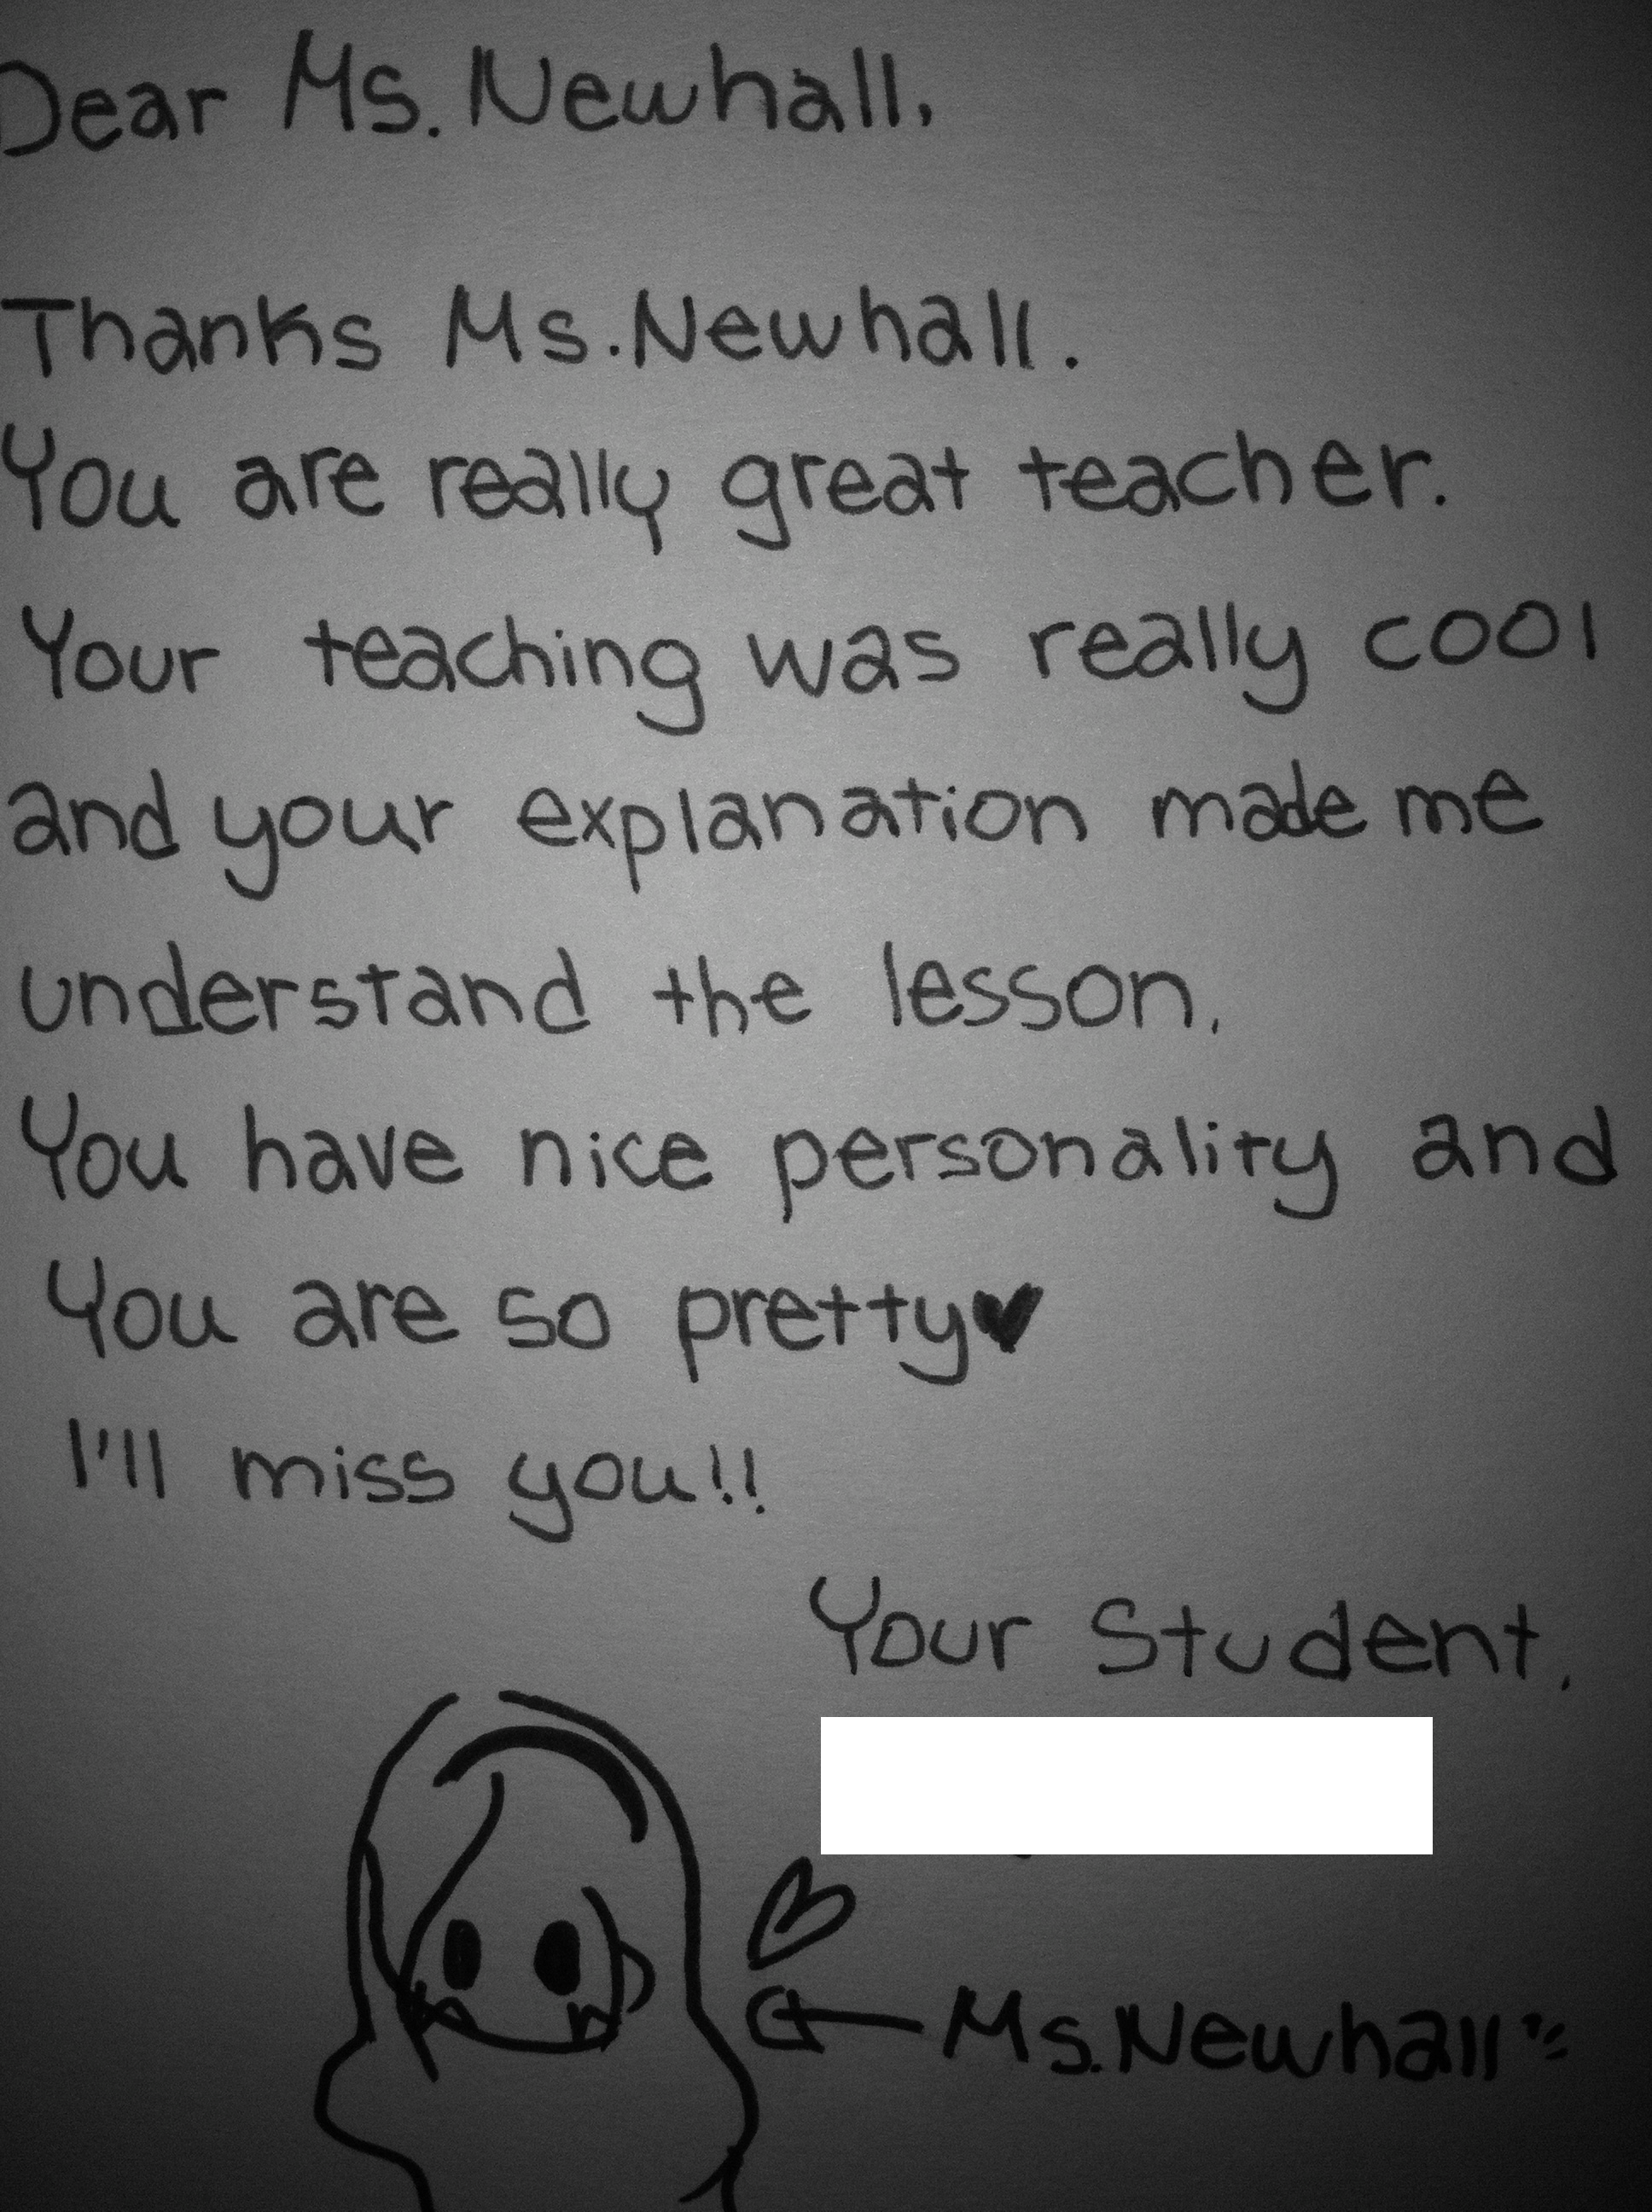 Dear Ms. Newhall,
Thanks Ms. Newhall.
You are really great teacher.
Your teaching was really cool
and your explanation made me
understand the lesson.
You have nice personality and
You are so pretty♥
I'll miss you!!
Your Student,
Ms. Newhall